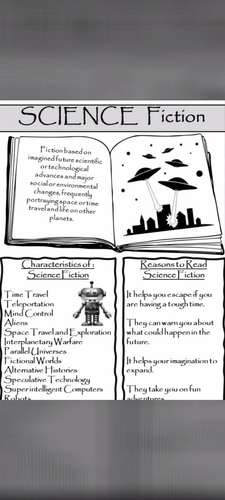 SCIENCE Fiction
Fiction based on
imagined future scientific
or technological
advances and major
social or environmental
changes, frequently
portraying space or time
travel and life on other
planets.
Characteristics of :
Science Fiction
Time Travel
Teleportation
Mind Control
Aliens
Space Travel and Exploration
Interplanetary Warfare
Parallel Universes
Fictional Worlds
Alternative Histories
Speculative Technology
Super intelligent Computers
Robots
Reasons to Read
Science Fiction
It helps you escape if you
are having a tough time.
They can warn you about
what could happen in the
future.
It helps your imagination to
expand.
They take you on fun
adventures